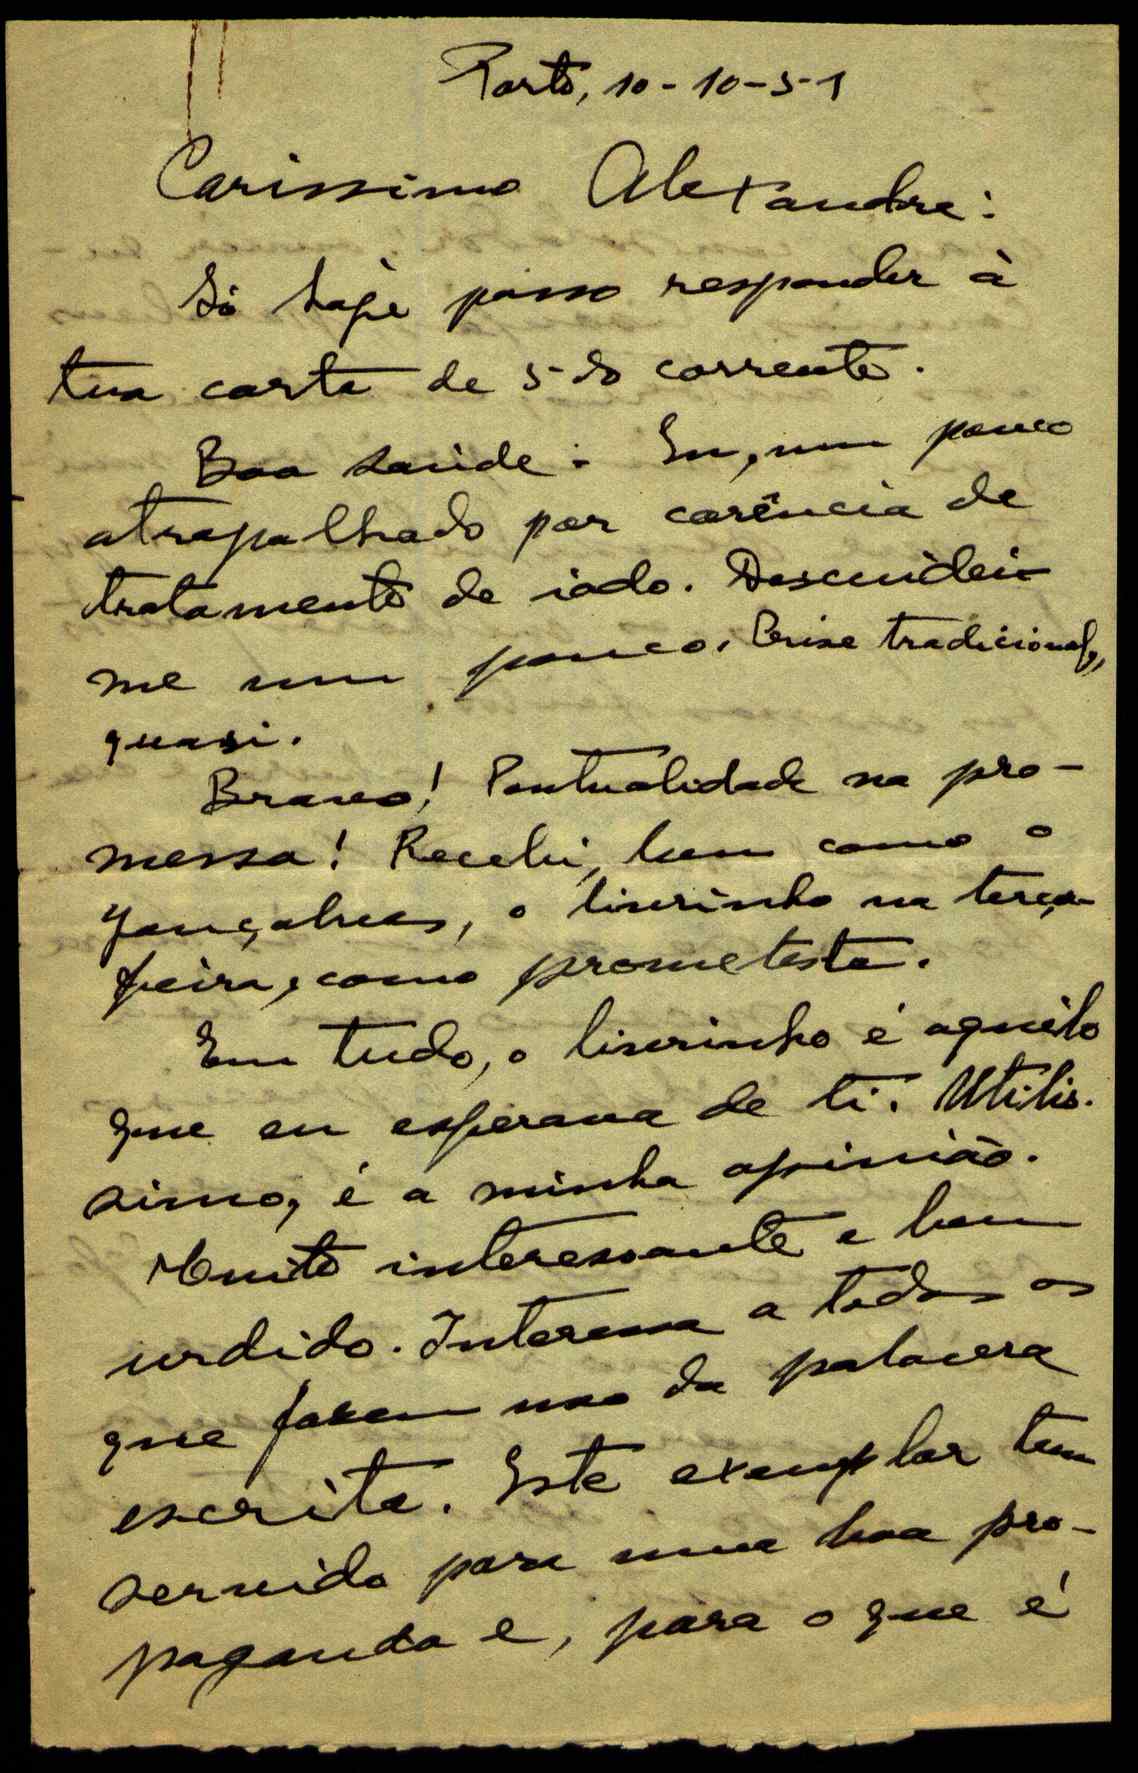 Porto, 10-10-51
Carissimo Alexandre:
Só hoje posso responder à
tua carta de 5 do corrente.
Boa saúde. Eu, um pouco
atrapalhado por carência de
tratamento de iodo. Descuidei-
me um pouco. Crise tradicional,
quasi.
Bravo! Pontualidade na pro-
messa! Recebi, bem como o
Gonçalves, o livrinho na terça-
feira, como prometeste.
Em tudo, o livrinho é aquilo
que eu esperava de ti. Utilis-
simo, é a minha opinião.
Muito interessante e bem
urdido. Interessa a todos os
que fazem uso da palavra
escrita. Este exemplar tem
servido para uma boa pro-
paganda e, para o que é